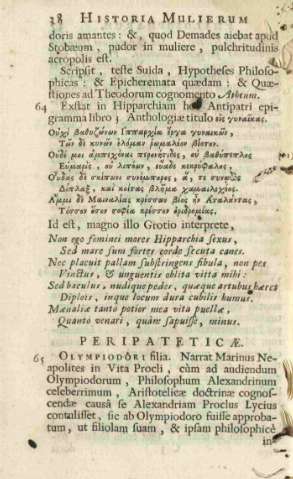 38 HISTORIA MULIERUM
doris amantes: &, quod Demades aiebat apud
Stobæum, pudor in muliere, pulchritudinis
acropolis est.
Scripsit, teste Suida, Hypotheses Philoso-
phicas: & Epicheremata quædam: & Quæ-
stiones ad Theodorum cognomento Atheum.
64 Exstat in Hipparchiam Antipatri epi-
gramma libro 3 Anthologiæ titulo εἰς γυναῖκας.
Οὐχὶ βαθυζώνων Ἱππαρχία ἔργα γυναικῶν,
Τῶν δὲ κυνῶν ἑλόμαν ῥωμαλέον βίοτον.
Οὐδέ μοι ἀμπεχόναι περονήτιδες, οὐ βαθύπεπλος
Εὐμαρὶς, οὐ λιπόων
Οὐδὰς δὲ σκίπωνι συνέμπορος, ἅ, τε συνῳδὸς
Δίπλαξ, καὶ κοίτας βλῆμα χαμαιλεχέος.
Ἄμμι δὲ Μαιναλίας κρέσσων βίος ἦν Ἀταλάντας,
Τόσσον ὅσον σοφία κρέσσον ὀριδρομίας.
Id est, magno illo Grotio interprete,
Non ego feminei mores Hipparchia sexus,
Sed mare sum fortes corde secuta canes.
Nec placuit pallam substringens fibula, non pes
Vinctus, & unguentis oblita vitta mihi:
Sed baculus, nudique pedes, quæque artubus hæret
Diplois, inque locum dura cubilis humus.
Mænaliæ tanto potior mea vita puellæ,
Quanto venari, quàm sapuisse, minus.
PERIPATETICÆ.
65 OLYMPIODORI filia. Narrat Marinus Ne-
apolites in Vita Procli, cùm ad audiendum
Olympiodorum, Philosophum Alexandrinum
celeberrimum, Aristotelicæ doctrinæ cognos-
cendæ causâ se Alexandriam Proclus Lycius
contulisset, sic ab Olympiodoro fuisse approba-
tum, ut filiolam suam, & ipsam philosophicè
in